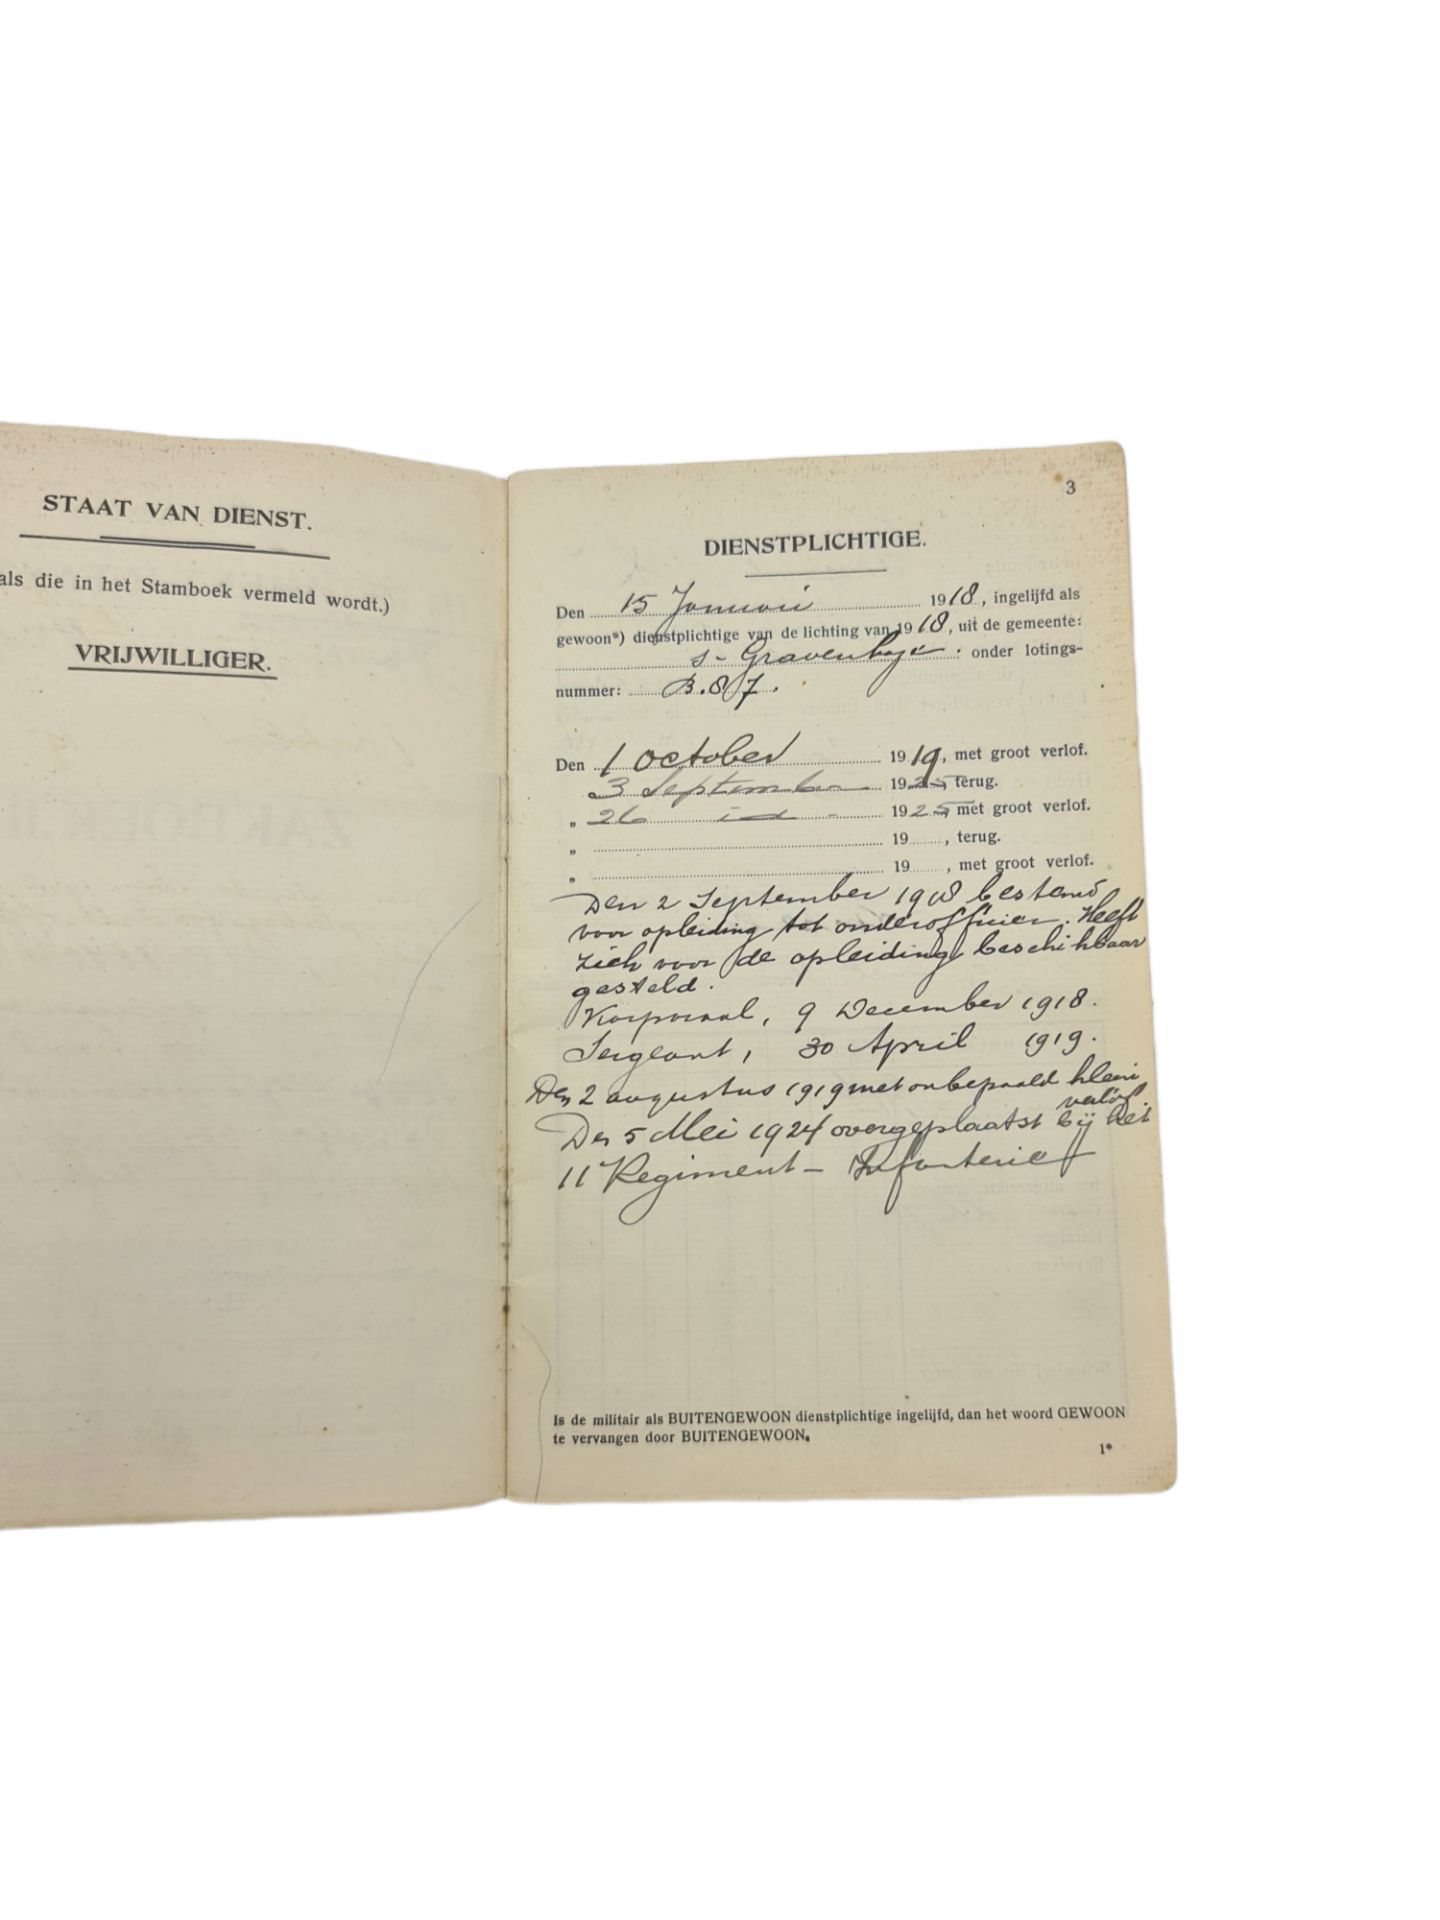 STAAT VAN DIENST.
als die in het Stamboek vermeld wordt.)
VRIJWILLIGER.
3
DIENSTPLICHTIGE.
Den 15 Januari 1918, ingelijfd als
gewoon*) dienstplichtige van de lichting van 1918, uit de gemeente:
s-Gravenhage : onder lotings-
nummer: B.87.
Den 1 October 1919, met groot verlof.
3 September 1925, terug.
„ 26 id - 1925, met groot verlof.
„ 19 , terug.
„ 19 , met groot verlof.
Den 2 September 1918 bestemd
voor opleiding tot onderofficier. Heeft
zich voor de opleiding beschikbaar
gesteld.
Korporaal, 9 December 1918.
Sergeant, 30 April 1919.
Den 2 augustus 1919 met onbepaald klein
verlof.
Den 5 Mei 1924 overgeplaatst bij het
11e Regiment - Infanterie
Is de militair als BUITENGEWOON dienstplichtige ingelijfd, dan het woord GEWOON
te vervangen door BUITENGEWOON.
1*